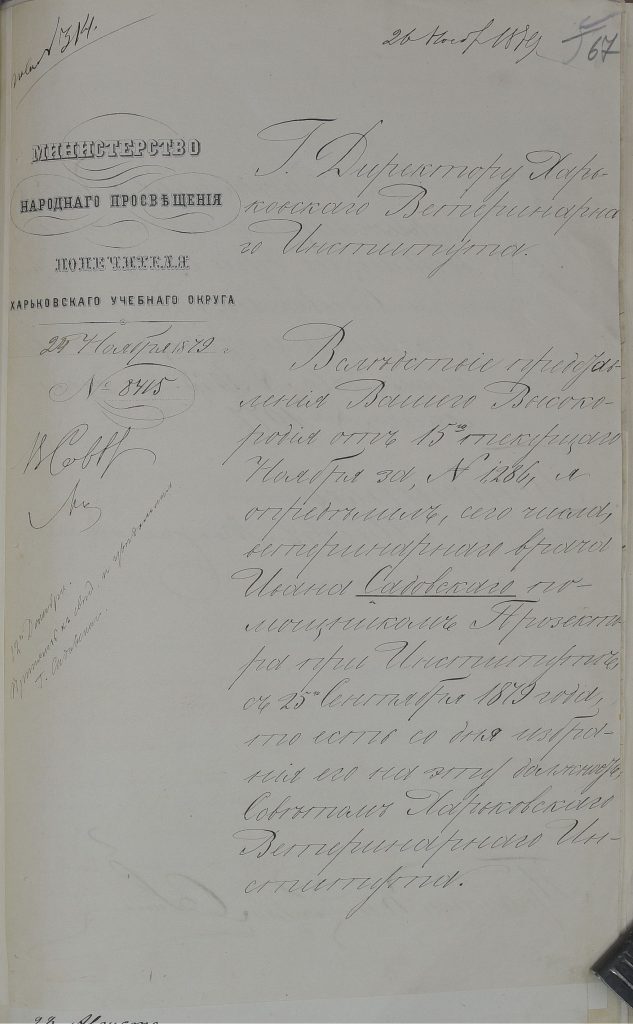 № 314.
26 Нояб 1879
67
МИНИСТЕРСТВО
НАРОДНАГО ПРОСВѢЩЕНІЯ
ПОПЕЧИТЕЛЯ
ХАРЬКОВСКАГО УЧЕБНАГО ОКРУГА
Ноября 1879 г
№ 8415
Г. Директору Харь-
ковскаго Ветеринарна
го Института.
Вслѣдствіе представ-
ленія Вашего Высоко-
родія отъ 15го текущаго
Ноября за, № 1286, я
опредѣлилъ, сего числа,
ветеринарнаго врача
Ивана Садовскаго по-
мощникомъ Прозекто-
ра при Институтѣ,
съ 25го Сентября 1879 года,
то есть со дня избра-
нія его на эту должность,
Совѣтомъ Харьковскаго
Ветеринарнаго Ин-
ститута.
Въ Совѣтъ
12го Декабря.
Принять къ свѣд. и
Г. Садовскаго.
22 Августа